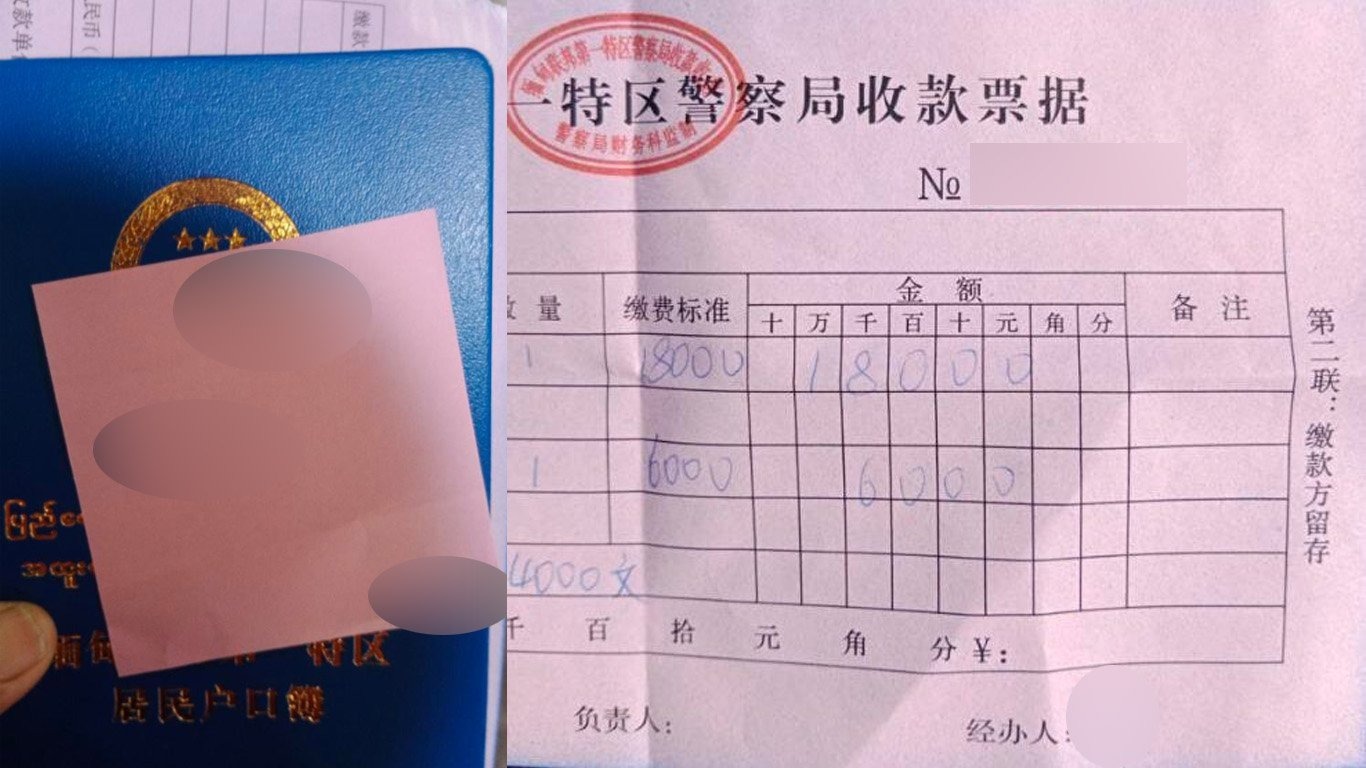 民币（
缴款
款单
ပြည်
အထူး
特区
居民户口簿
缅甸掸邦第一特区警察局收款
警察局财务科监制
一特区警察局收款票据
№
量 缴费标准 金额 备注
十 万 千 百 十 元 角 分
1 18000 1 8 0 0 0
1 6000 6 0 0 0
4000文
千 百 拾 元 角 分 ¥：
负责人： 经办人：
第二联：缴款方留存